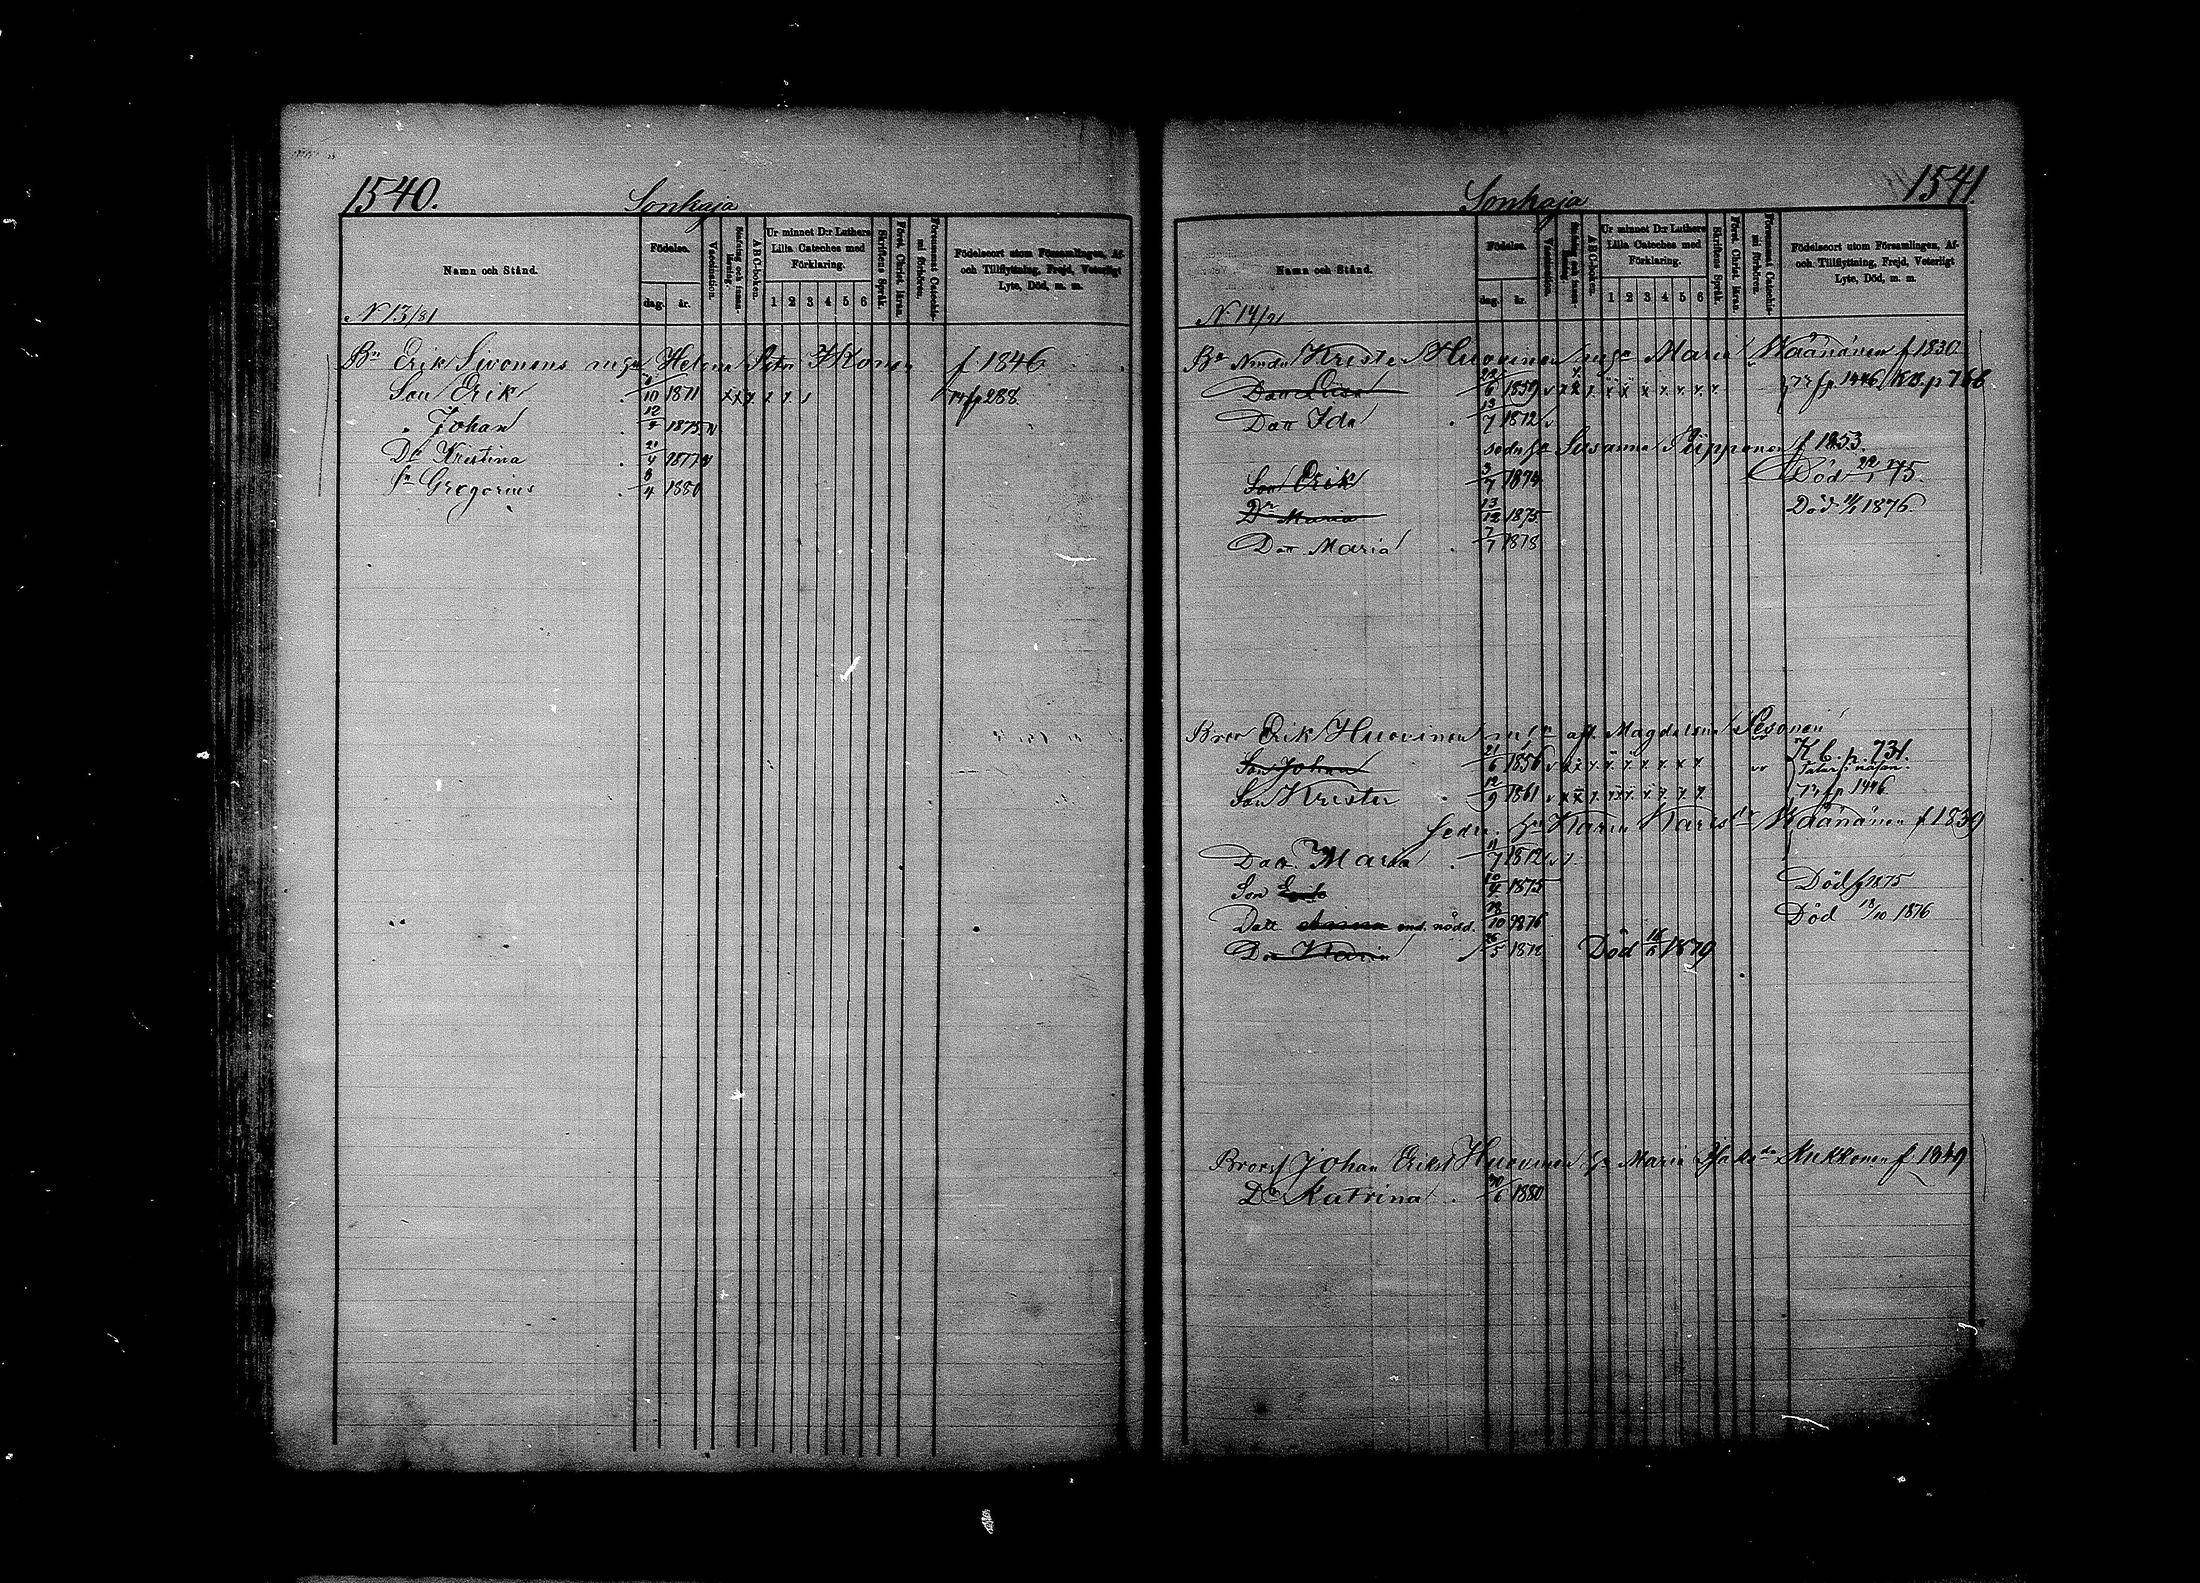 1540.
Sonkaja
Namn och Stånd.
Födelse.
dag.
år.
Vaccination.
Stafning och innan-läsning.
ABC-boken.
Ur minnet D:r Luthers Lilla Cateches med Förklaring.
1 2 3 4 5 6
Skriftens Språk.
Först. Christ. läran.
Försummat Catechismi förhören.
Födelseort utom Församlingen, Af- och Tillflyttning, Frejd, Veterligt Lyte, Död, m. m.
N 13/81
Bn Erik Sivonens Helena Petri f 1846
Son Erik 10 1871 x x 288
" Johan 12 1875
Dr Kristina 4 1877
Sn Gregorius 8/4 1880
1541.
Sonkaja
Namn och Stånd.
Födelse.
dag.
år.
Vaccination.
Stafning och innan-läsning.
ABC-boken.
Ur minnet D:r Luthers Lilla Cateches med Förklaring.
1 2 3 4 5 6
Skriftens Språk.
Först. Christ. läran.
Försummat Catechismi förhören.
Födelseort utom Församlingen, Af- och Tillflyttning, Frejd, Veterligt Lyte, Död, m. m.
N 14/
Bn Krister Huovinen Maria Wäänänen f 1830
22/6 1859 1446
Datt Ida 13/7 1872
Susanna Piipponen f 1853.
Son Erik 3/7 1874 Död 75.
Dr Maria 13/12 1875 Död 1876.
Datt Maria 7/7 1878
Bror Erik Huovinen Magdalena Pesonen
Son Johan 21/6 1856 Kb. p. 731.
Son Krister 12/9 1861 1446
Karin Karlsdr Wäänänen f 1839
Datt. Maria 11/7 1872
Son 1875 Död 1875
Datt Anna nödd. 10 1876 Död 18/10 1876
Datt Karin 26/5 1878 Död 1879
Brorsn Johan Eriks Huovinen Maria Mukkonen f 1849
Dr Katrina 1880